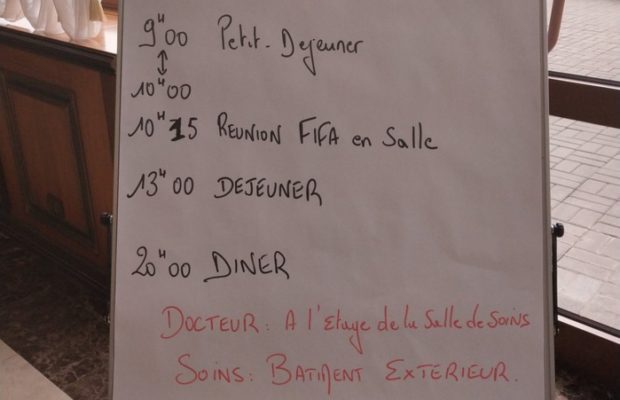 9H00 Petit-Dejeuner
↕
10H00
10H15 REUNION FIFA en Salle
13H00 DEJEUNER
20H00 DINER
DOCTEUR: A l'Etage de la Salle de Soins
SOINS: BATIMENT EXTERIEUR.